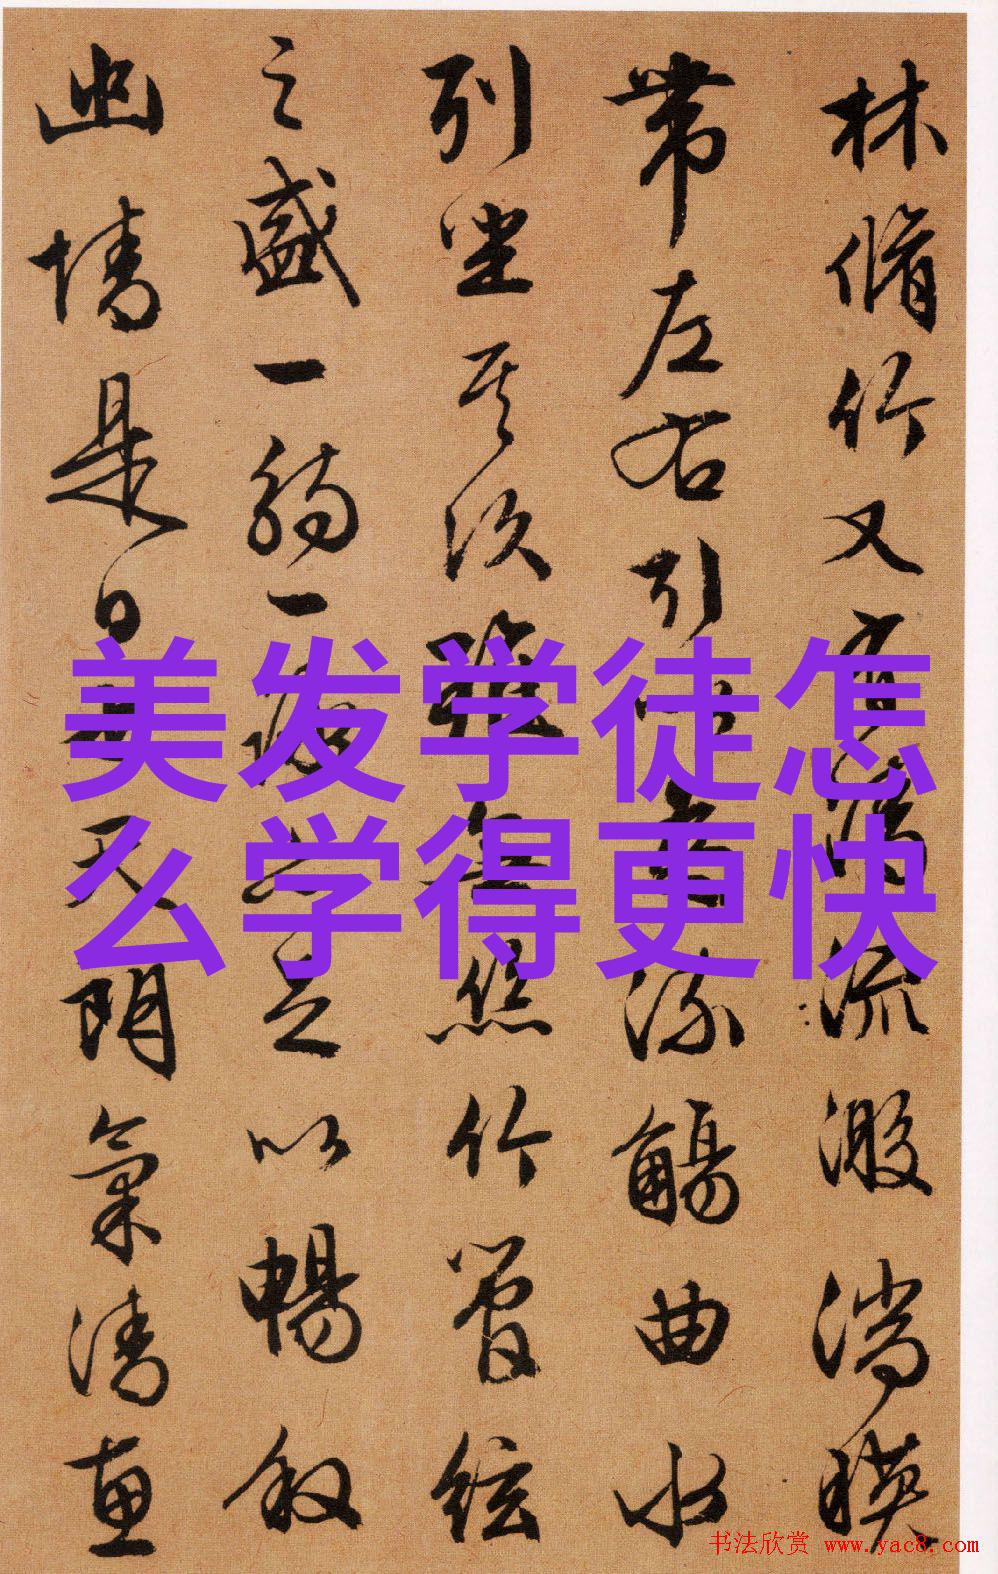 林脩竹又有清流激湍暎
帶左右引以為流觴曲水
列坐其次雖無絲竹管絃
之盛一觴一詠亦足以暢叙
幽情是日也天朗氣清惠
美发学徒怎
么学得更快
书法欣赏 www.yac8.com